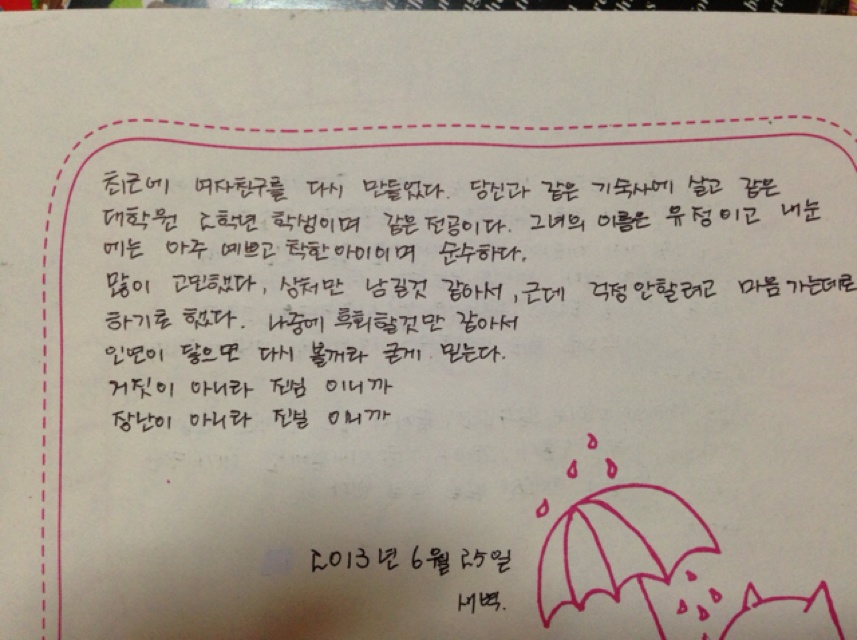 최근에 여자친구를 다시 만들었다. 당신과 같은 기숙사에 살고 같은
대학원 2학년 학생이며 같은 전공이다. 그녀의 이름은 유정이고 내눈
에는 아주 예쁘고 착한아이이며 순수하다.
많이 고민했다, 상처만 남길것 같아서, 근데 걱정안할려고 마음가는데로
하기로 했다. 나중에 후회할것만 같아서
인연이 닿으면 다시 볼꺼라 굳게 믿는다.
거짓이 아니라 진심 이니까
장난이 아니라 진실 이니까
2013년 6월 25일
새벽.